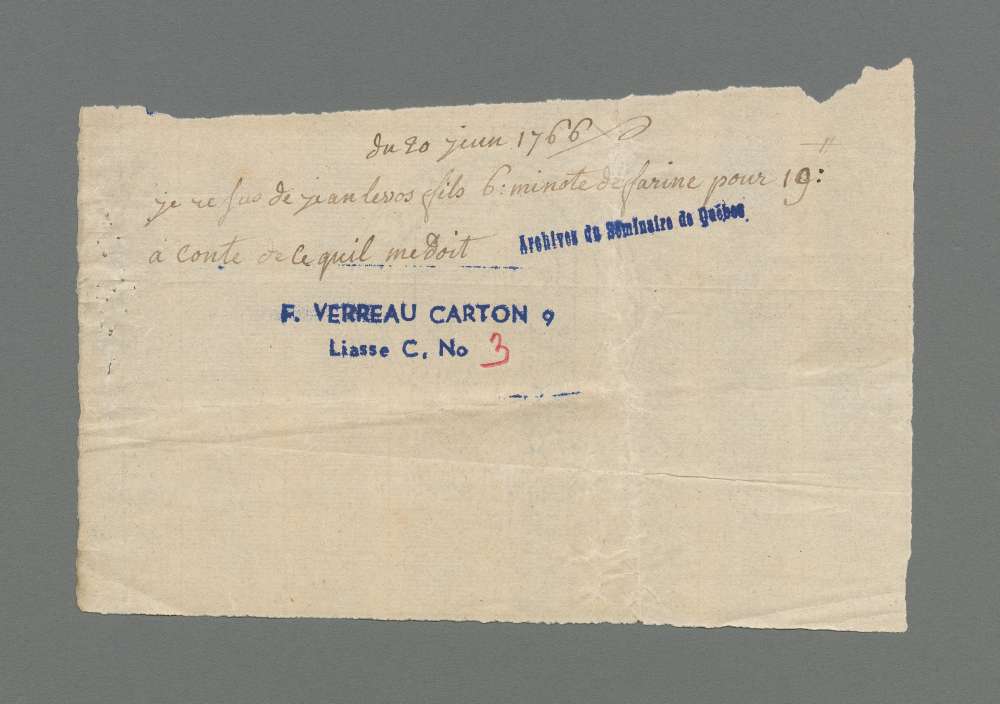 du 20 juin 1766
je re sus de jean leros fils 6: minote de farine pour 19:"
a conte de ce quil me doit
Archives du Séminaire de Québec
F. VERREAU CARTON 9
Liasse C, No 3